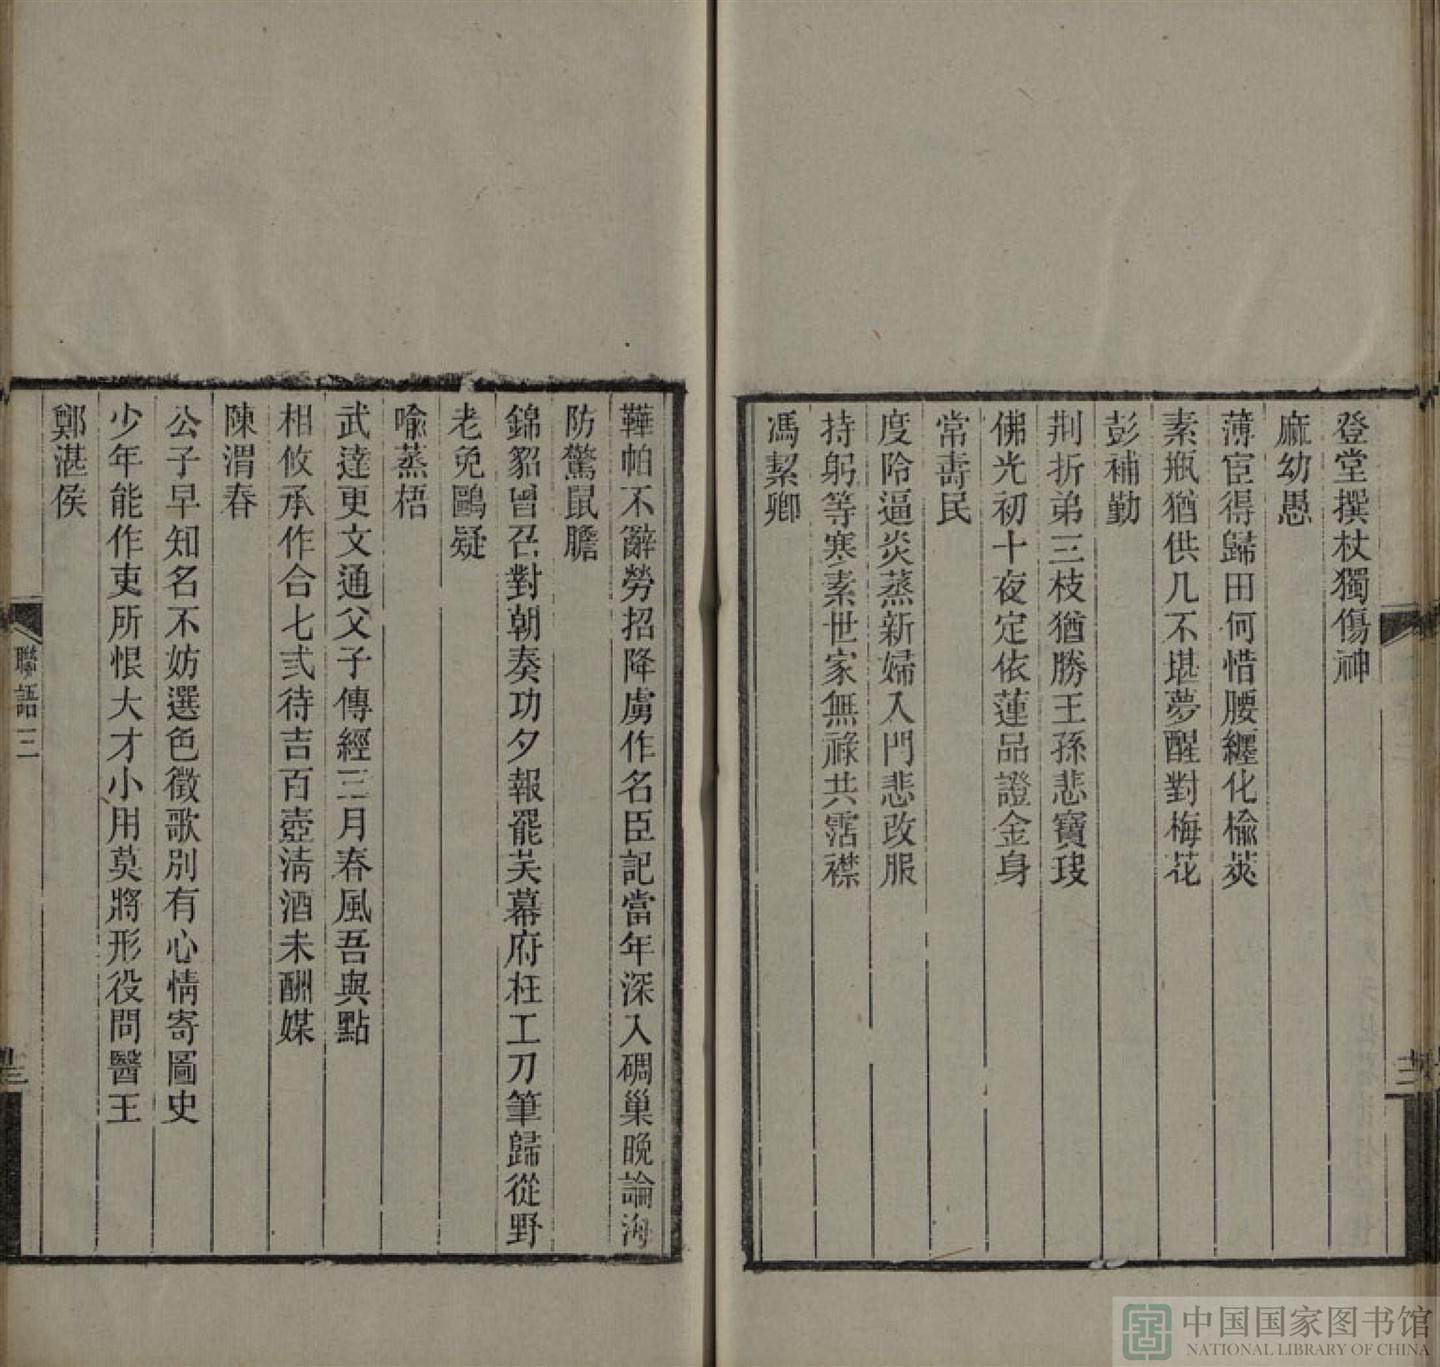 登堂撰杖獨傷神
麻幼愚
薄宦得歸田何惜腰纏化榆莢
素瓶猶供几不堪夢醒對梅花
彭補勤
荆折弟三枝猶勝王孫悲寶玦
佛光初十夜定依蓮品證金身
常壽民
度阾逼炎蒸新婦入門悲改服
持躬等寒素世家無祿共霑襟
馮絜卿
鞾帕不辭勞招降虜作名臣記當年深入碉巢晚論海
防驚鼠膽
錦貂曾召對朝奏功夕報罷芺幕府枉工刀筆歸從野
老免鷗疑
喩蒸梧
武達更文通父子傳經三月春風吾與點
相攸承作合七弍待吉百壺淸酒未酬媒
陳渭春
公子早知名不妨選色徵歌別有心情寄圖史
少年能作吏所恨大才小用莫將形役問醫王
鄭湛侯
聯語三
中国国家图书馆
NATIONAL LIBRARY OF CHINA